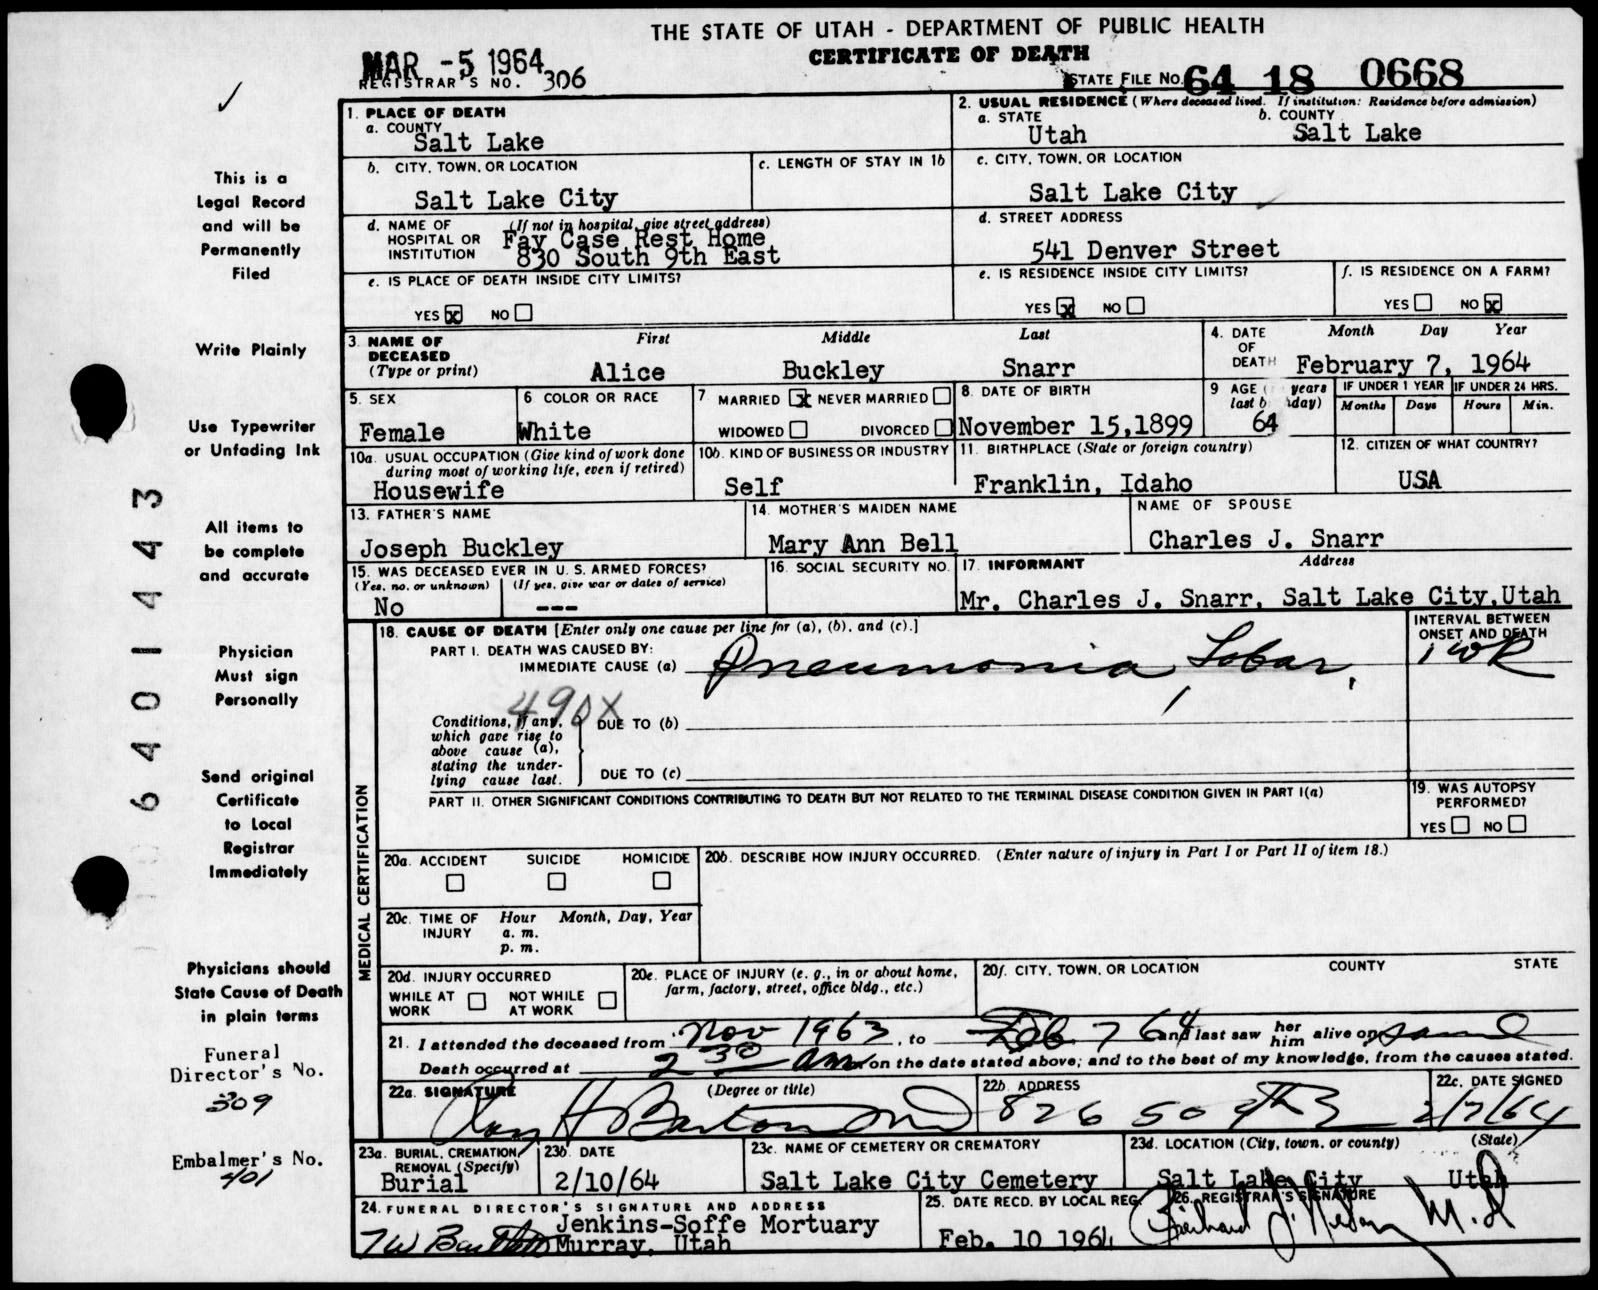 THE STATE OF UTAH - DEPARTMENT OF PUBLIC HEALTH
CERTIFICATE OF DEATH
MAR -5 1964
REGISTRAR'S NO. 306
STATE FILE NO. 64 18 0668
This is a
Legal Record
and will be
Permanently
Filed
Write Plainly
Use Typewriter
or Unfading Ink
All items to
be complete
and accurate
Physician
Must sign
Personally
Send original
Certificate
to Local
Registrar
Immediately
Physicians should
State Cause of Death
in plain terms
Funeral
Director's No.
309
Embalmer's No.
401
64014443
1. PLACE OF DEATH
a. COUNTY
Salt Lake
2. USUAL RESIDENCE (Where deceased lived. If institution: Residence before admission)
a. STATE
Utah
b. COUNTY
Salt Lake
b. CITY, TOWN, OR LOCATION
Salt Lake City
c. LENGTH OF STAY IN 1b
c. CITY, TOWN, OR LOCATION
Salt Lake City
d. NAME OF HOSPITAL OR INSTITUTION
(If not in hospital, give street address)
Fay Case Rest Home
830 South 9th East
d. STREET ADDRESS
541 Denver Street
e. IS PLACE OF DEATH INSIDE CITY LIMITS?
YES x NO
e. IS RESIDENCE INSIDE CITY LIMITS?
YES x NO
f. IS RESIDENCE ON A FARM?
YES NO x
3. NAME OF DECEASED
(Type or print)
First Middle Last
Alice Buckley Snarr
4. DATE OF DEATH
Month Day Year
February 7, 1964
5. SEX
Female
6 COLOR OR RACE
White
7 MARRIED x NEVER MARRIED
WIDOWED DIVORCED
8. DATE OF BIRTH
November 15,1899
9 AGE ( years
last b day)
64
IF UNDER 1 YEAR
Months Days
IF UNDER 24 HRS.
Hours Min.
10a. USUAL OCCUPATION (Give kind of work done
during most of working life, even if retired)
Housewife
10b. KIND OF BUSINESS OR INDUSTRY
Self
11. BIRTHPLACE (State or foreign country)
Franklin, Idaho
12. CITIZEN OF WHAT COUNTRY?
USA
13. FATHER'S NAME
Joseph Buckley
14. MOTHER'S MAIDEN NAME
Mary Ann Bell
NAME OF SPOUSE
Charles J. Snarr
15. WAS DECEASED EVER IN U. S. ARMED FORCES?
(Yes, no, or unknown) (If yes, give war or dates of service)
No ---
16. SOCIAL SECURITY NO.
17. INFORMANT Address
Mr. Charles J. Snarr, Salt Lake City,Utah
MEDICAL CERTIFICATION
18. CAUSE OF DEATH [Enter only one cause per line for (a), (b), and (c).]
INTERVAL BETWEEN
ONSET AND DEATH
PART I. DEATH WAS CAUSED BY:
IMMEDIATE CAUSE (a) Pneumonia, Lobar, 1 WK
490X
Conditions, if any,
which gave rise to
above cause (a),
stating the under-
lying cause last.
DUE TO (b)
DUE TO (c)
PART II. OTHER SIGNIFICANT CONDITIONS CONTRIBUTING TO DEATH BUT NOT RELATED TO THE TERMINAL DISEASE CONDITION GIVEN IN PART I(a)
19. WAS AUTOPSY
PERFORMED?
YES NO
20a. ACCIDENT SUICIDE HOMICIDE
20b. DESCRIBE HOW INJURY OCCURRED. (Enter nature of injury in Part I or Part II of item 18.)
20c. TIME OF INJURY
Hour Month, Day, Year
a. m.
p. m.
20d. INJURY OCCURRED
WHILE AT WORK NOT WHILE AT WORK
20e. PLACE OF INJURY (e. g., in or about home,
farm, factory, street, office bldg., etc.)
20f. CITY, TOWN, OR LOCATION COUNTY STATE
21. I attended the deceased from Nov 1963, to Feb. 7 64 and last saw her him alive on same
Death occurred at 2 30 am on the date stated above; and to the best of my knowledge, from the causes stated.
22a. SIGNATURE (Degree or title)
Ray H Barton MD
22b. ADDRESS
826 So 9th E
22c. DATE SIGNED
2/7/64
23a. BURIAL, CREMATION,
REMOVAL (Specify)
Burial
23b. DATE
2/10/64
23c. NAME OF CEMETERY OR CREMATORY
Salt Lake City Cemetery
23d. LOCATION (City, town, or county) (State)
Salt Lake City Utah
24. FUNERAL DIRECTOR'S SIGNATURE AND ADDRESS
Jenkins-Soffe Mortuary
Murray, Utah
25. DATE RECD. BY LOCAL REG.
Feb. 10 1964
26. REGISTRAR'S SIGNATURE
M.D